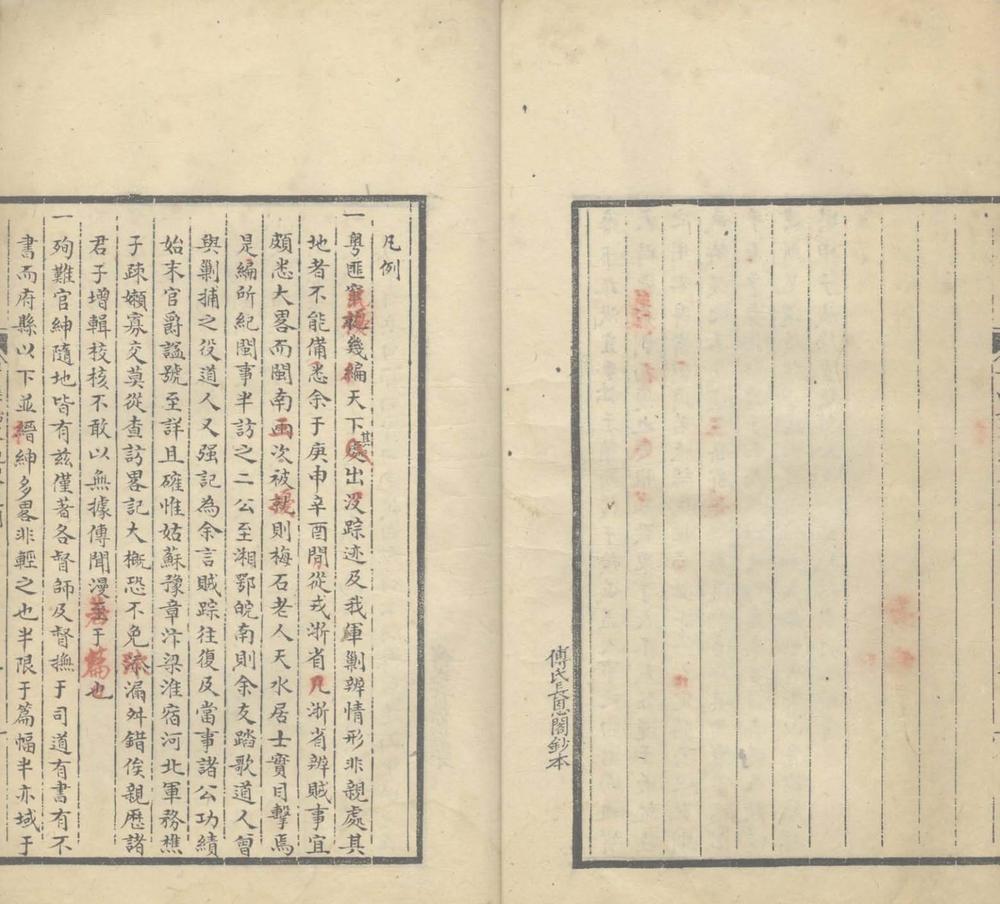 傅氏長恩閣鈔本
凡例
一粵匪竄擾幾編天下其處出沒踪迹及我軍剿辦情形非親處其
地者不能備悉余于庚申辛酉間從戎浙省凡浙省辦賊事宜
頗悉大畧而閩南兩次被擾則梅石老人天水居士實目擊焉
是編所紀閩事半訪之二公至湘鄂皖南則余友踏歌道人曾
與剿捕之役道人又强記為余言賊踪往復及當事諸公功績
始末官爵謚號至詳且確惟姑蘇豫章汴梁淮宿河北軍務樵
子疎嬾寡交莫從查訪畧記大概恐不免疎漏舛錯俟親歷諸
君子增輯校核不敢以無據傳聞漫著于篇也
一殉難官紳隨地皆有兹僅著各督師及督撫于司道有書有不
書而府縣以下並縉紳多畧非輕之也半限于篇幅半亦域于